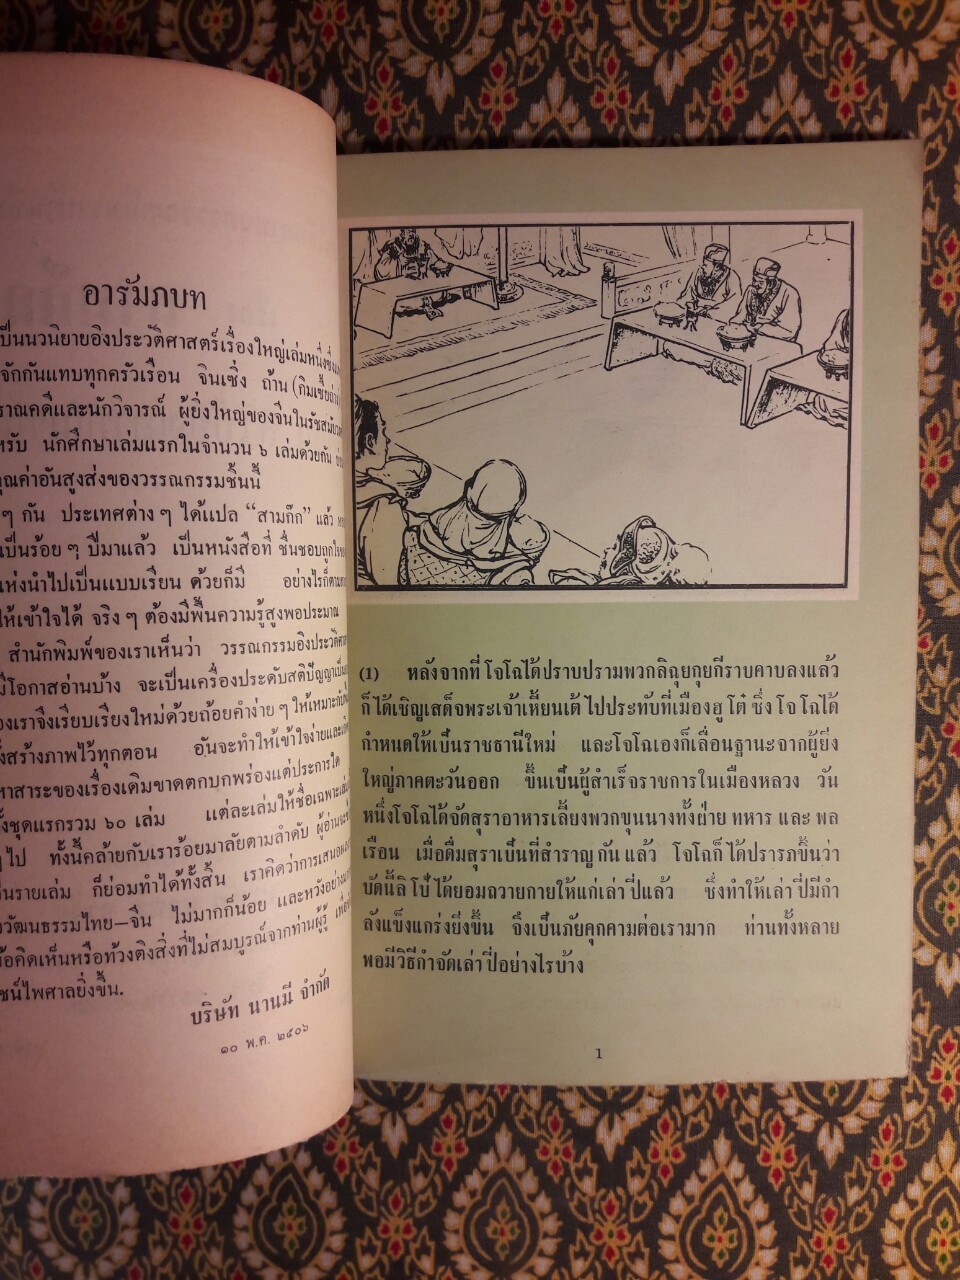 อารัมภบท
เป็นนวนิยายอิงประวัติศาสตร์เรื่องใหญ่เล่มหนึ่งซึ่ง
จักกันแทบทุกครัวเรือน จินเซิ่ง ถ้าน (กิมเซี้ยถ่าน)
ราณคดีและนักวิจารณ์ ผู้ยิ่งใหญ่ของจีนในรัชสมัย
หรับ นักศึกษาเล่มแรกในจำนวน ๖ เล่มด้วยกัน
คุณค่าอันสูงส่งของวรรณกรรมชิ้นนี้
ๆ กัน ประเทศต่าง ๆ ได้แปล “สามก๊ก” แล้ว
เป็นร้อย ๆ ปีมาแล้ว เป็นหนังสือที่ ชื่นชอบถูกใจ
แห่งนำไปเป็นแบบเรียน ด้วยก็มี อย่างไรก็ตาม
ให้เข้าใจได้ จริง ๆ ต้องมีพื้นความรู้สูงพอประมาณ
สำนักพิมพ์ของเราเห็นว่า วรรณกรรมอิงประวัติศาส
มีโอกาสอ่านบ้าง จะเป็นเครื่องประดับสติปัญญาเป็น
องเราจึงเรียบเรียงใหม่ด้วยถ้อยคำง่าย ๆ ให้เหมาะกับ
ั้งสร้างภาพไว้ทุกตอน อันจะทำให้เข้าใจง่ายและ
หาสาระของเรื่องเดิมขาดตกบกพร่องแต่ประการใด
ั้งชุดแรกรวม ๖๐ เล่ม แต่ละเล่มให้ชื่อเฉพาะ
ๆ ไป ทั้งนี้คล้ายกับเราร้อยมาลัยตามลำดับ ผู้อ่านจะ
็นรายเล่ม ก็ย่อมทำได้ทั้งสิ้น เราคิดว่าการเสนอ
วัฒนธรรมไทย–จีน ไม่มากก็น้อย และหวังอย่าง
ข้อคิดเห็นหรือท้วงติงสิ่งที่ไม่สมบูรณ์จากท่านผู้รู้ เพื่อ
ชน์ไพศาลยิ่งขึ้น.
บริษัท นานมี จำกัด
๑๐ พ.ค. ๒๕๐๖
(1) หลังจากที่ โจโฉได้ปราบปรามพวกลิฉุยกุยกีราบคาบลงแล้ว
ก็ได้เชิญเสด็จพระเจ้าเหี้ยนเต้ ไปประทับที่เมืองฮูโต๋ ซึ่ง โจ โฉได้
กำหนดให้เป็นราชธานีใหม่ และโจโฉเองก็เลื่อนฐานะจากผู้ยิ่ง
ใหญ่ภาคตะวันออก ขึ้นเป็นผู้สำเร็จราชการในเมืองหลวง วัน
หนึ่งโจโฉได้จัดสุราอาหารเลี้ยงพวกขุนนางทั้งฝ่าย ทหาร และ พล
เรือน เมื่อดื่มสุราเป็นที่สำราญ กัน แล้ว โจโฉก็ ได้ปรารภขึ้นว่า
บัดนี้ลิโป้ ได้ยอมถวายกายให้แก่เล่าปี่แล้ว ซึ่งทำให้เล่าปี่มีกำ
ลังแข็งแกร่งยิ่งขึ้น จึงเป็นภัยคุกคามต่อเรามาก ท่านทั้งหลาย
พอมีวิธีกำจัดเล่าปี่อย่างไรบ้าง
1